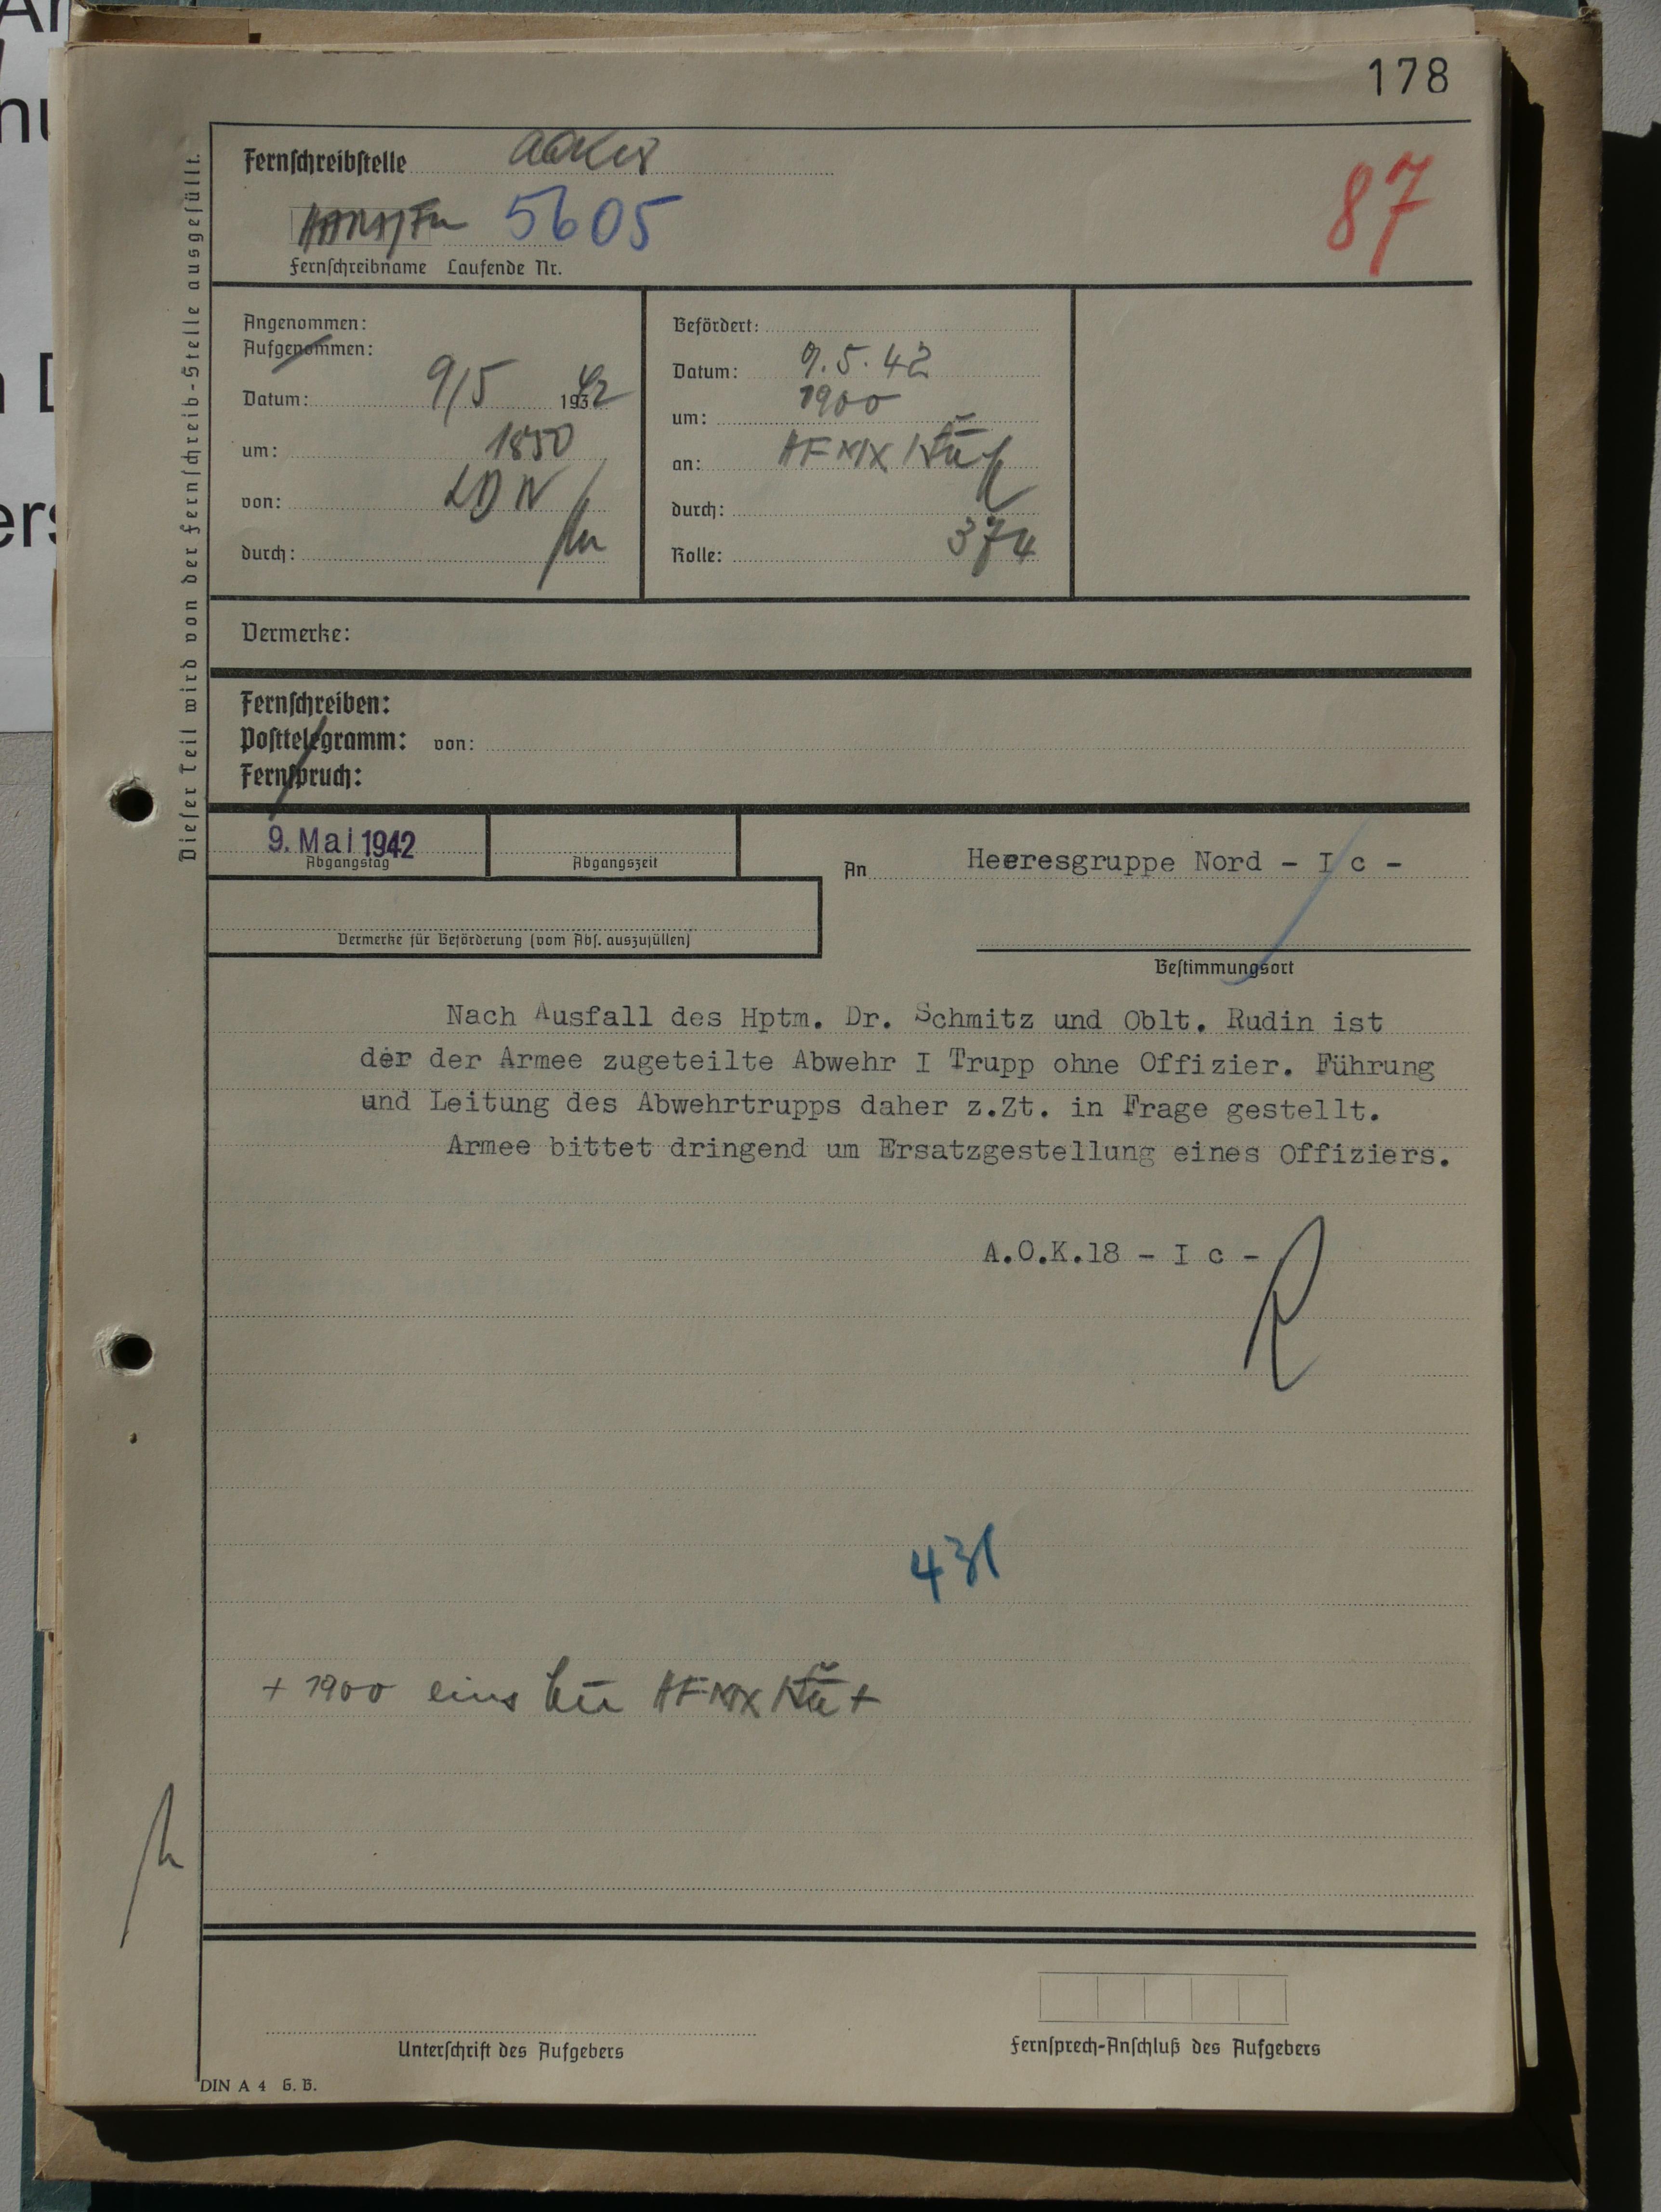 178
Fernschreibstelle AOK 18
87
5605
Fernschreibname Laufende Nr.
Angenommen:
Aufgenommen:
Datum: 9/5 1942
um: 1850
von: LDN
durch:
Befördert:
Datum: 9.5.42
um: 1900
an: HFMX
durch:
Rolle: 374
Dieser Teil wird von der Fernschreib-Stelle ausgefüllt.
Vermerke:
Fernschreiben:
Posttelegramm: von:
Fernspruch:
9. Mai 1942
Abgangstag
Abgangszeit
An Heeresgruppe Nord - I c -
Vermerke für Beförderung (vom Abs. auszufüllen)
Bestimmungsort
Nach Ausfall des Hptm. Dr. Schmitz und Oblt. Rudin ist
der der Armee zugeteilte Abwehr I Trupp ohne Offizier. Führung
und Leitung des Abwehrtrupps daher z.Zt. in Frage gestellt.
Armee bittet dringend um Ersatzgestellung eines Offiziers.
A.O.K.18 - I c -
431
+ 1900 eins
Unterschrift des Aufgebers
Fernsprech-Anschluß des Aufgebers
DIN A 4 G. B.